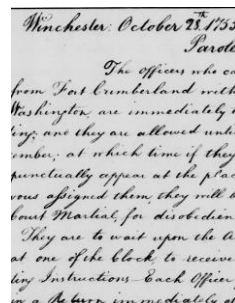 Winchester: October 28th, 1755
Parole
The Officers who ca
from Fort Cumberland with
Washington, are immediately
ing; and they are allowed unti
ember; at which time if they
punctually appear at the plac
vous assigned them, they will b
Court Martial, for disobedien
They are to wait upon the
at one of the Clock, to receive
ting Instructions - Each Officer
in a Return immediately